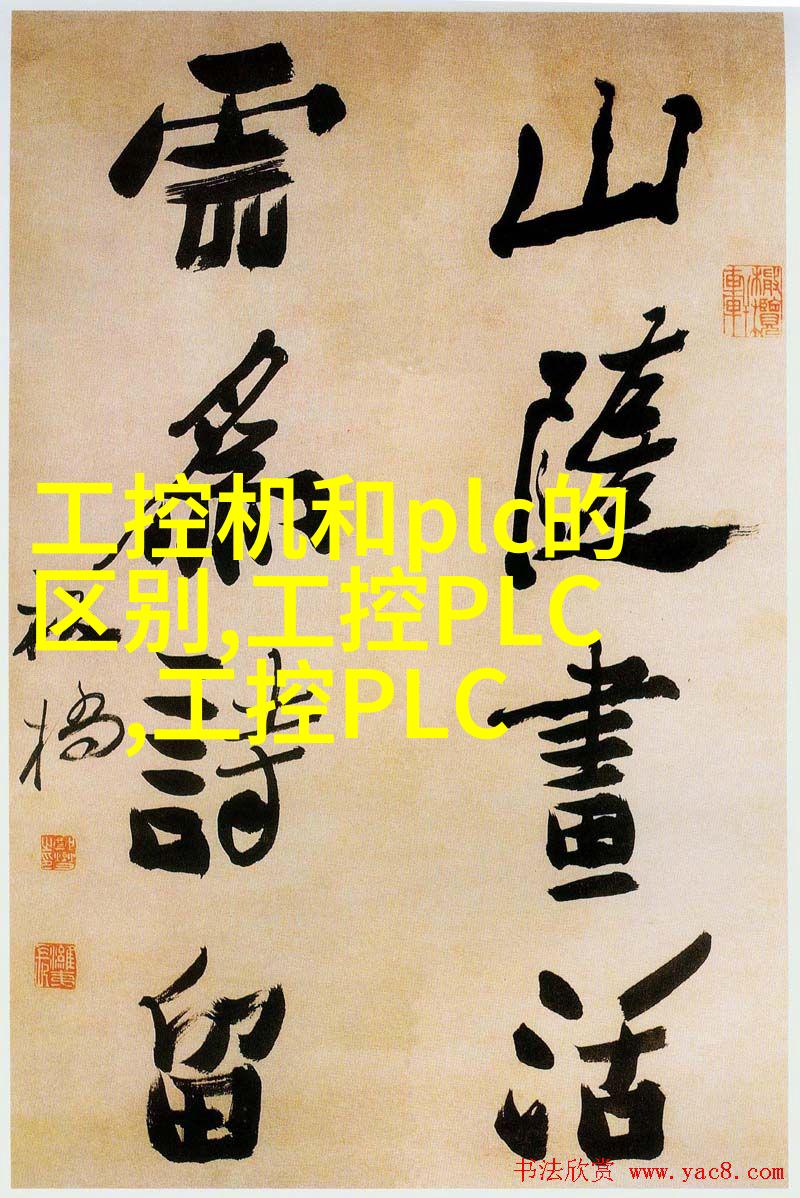 山隨畫活
雲爲詩留
板橋
工控机和plc的
区别,工控PLC
,工控PLC
书法欣赏 www.yac8.com